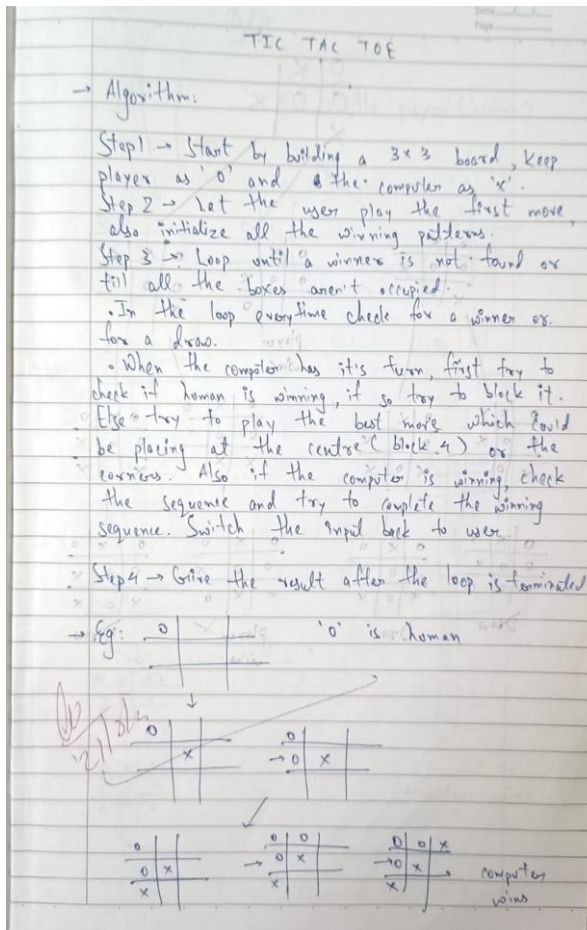 Date
Page
TIC TAC TOE
→ Algorithm:
Step1 → Start by building a 3x3 board, keep
player as 'O' and the computer as 'x'.
Step 2 → Let the user play the first move,
also initialize all the winning patterns.
Step 3 → Loop until a winner is not found or
till all the boxes aren't occupied.
• In the loop everytime check for a winner or
for a draw.
• When the computer has it's turn, first try to
check if human is winning, if so try to block it.
Else try to play the best move which could
be placing at the centre (block 4) or the
corners. Also if the computer is winning, check
the sequence and try to complete the winning
sequence. Switch the input back to user.
Step 4 → Give the result after the loop is terminated
→ Eg: O 'O' is human
↓
O O
x → O x
O O O O O x
O x → O x → O x computer
x x x wins